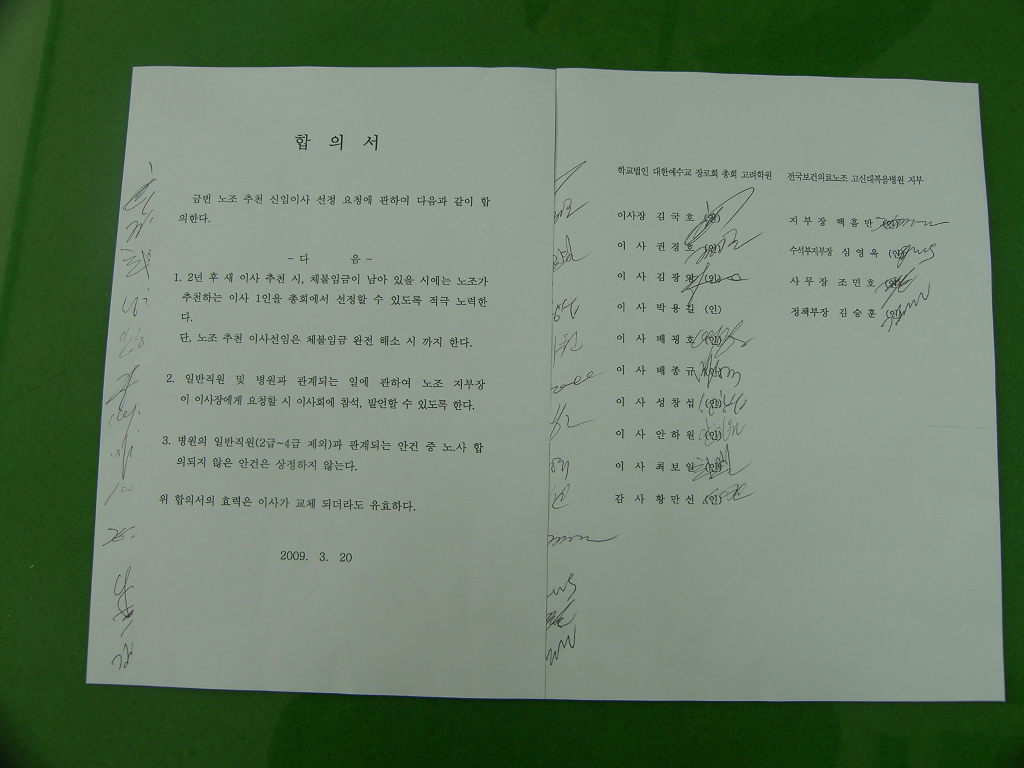 합 의 서
금번 노조 추천 신임이사 선정 요청에 관하여 다음과 같이 합
의한다.
- 다 음 -
1. 2년 후 새 이사 추천 시, 체불임금이 남아 있을 시에는 노조가
추천하는 이사 1인을 총회에서 선정할 수 있도록 적극 노력한
다.
단, 노조 추천 이사선임은 체불임금 완전 해소 시 까지 한다.
2. 일반직원 및 병원과 관계되는 일에 관하여 노조 지부장
이 이사장에게 요청할 시 이사회에 참석, 발언할 수 있도록 한다.
3. 병원의 일반직원(2급~4급 제외)과 관계되는 안건 중 노.사 합
의되지 않은 안건은 상정하지 않는다.
위 합의서의 효력은 이사가 교체 되더라도 유효하다.
2009. 3. 20
학교법인 대한예수교 장로회 총회 고려학원
이사장 김 국 호 (인)
이 사 권 경 호 (인)
이 사 김 광 (인)
이 사 박 용 길 (인)
이 사 배 굉 호 (인)
이 사 배 종 규 (인)
이 사 성 창 섭 (인)
이 사 안 하 원 (인)
이 사 최 보 일 (인)
감 사 황 만 선 (인)
전국보건의료노조 고신대복음병원 지부
지 부 장 백 흠 만 (인)
수석부지부장 심 영 옥 (인)
사 무 장 조 민 호 (인)
정책부장 김 승 훈 (인)